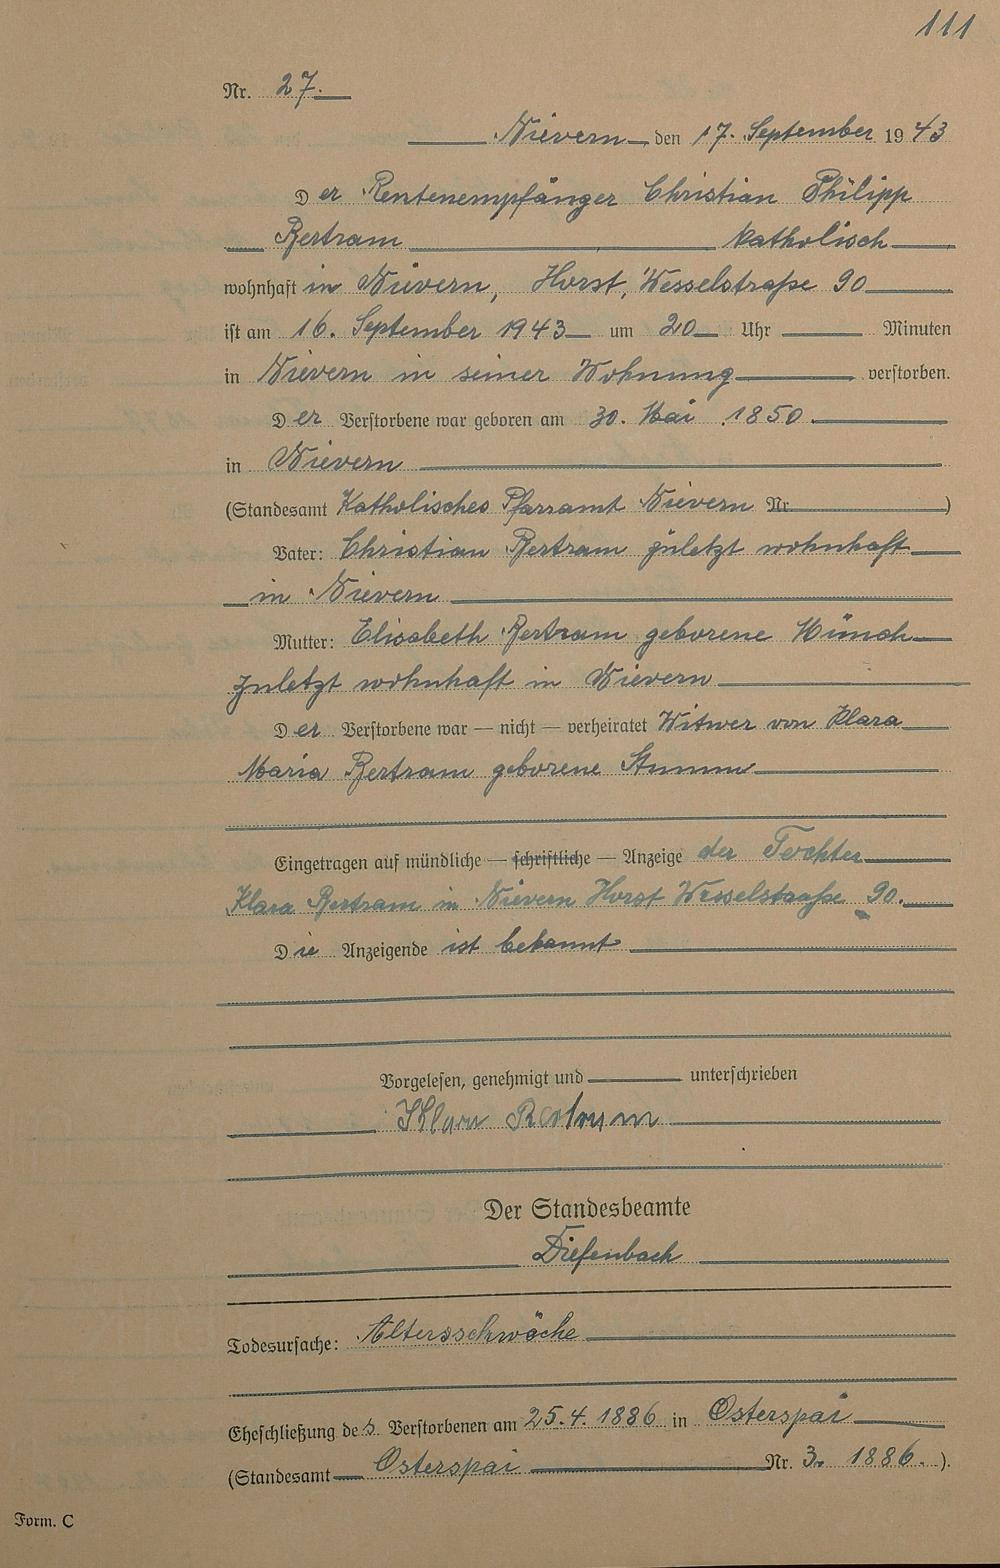 111
Nr. 27.
Nievern den 17. September 1943
Der Rentenempfänger Christian Philipp
Bertram katholisch
wohnhaft in Nievern, Horst, Wesselstraße 90
ist am 16. September 1943 um 20 Uhr Minuten
in Nievern in seiner Wohnung verstorben.
Der Verstorbene war geboren am 30. Mai 1850.
in Nievern
(Standesamt Katholisches Pfarramt Nievern Nr. )
Vater: Christian Bertram zuletzt wohnhaft
in Nievern
Mutter: Elisabeth Bertram geborene Münch
zuletzt wohnhaft in Nievern
Der Verstorbene war — nicht — verheiratet Witwer von Klara
Maria Bertram geborene Stumm
Eingetragen auf mündliche — schriftliche — Anzeige der Tochter
Klara Bertram in Nievern Horst Wesselstraße 90.
Die Anzeigende ist bekannt
Vorgelesen, genehmigt und unterschrieben
Klara Bertram
Der Standesbeamte
Diefenbach
Todesursache: Altersschwäche
Eheschließung des Verstorbenen am 25.4.1886 in Osterspai
(Standesamt Osterspai Nr. 3. 1886.).
Form. C